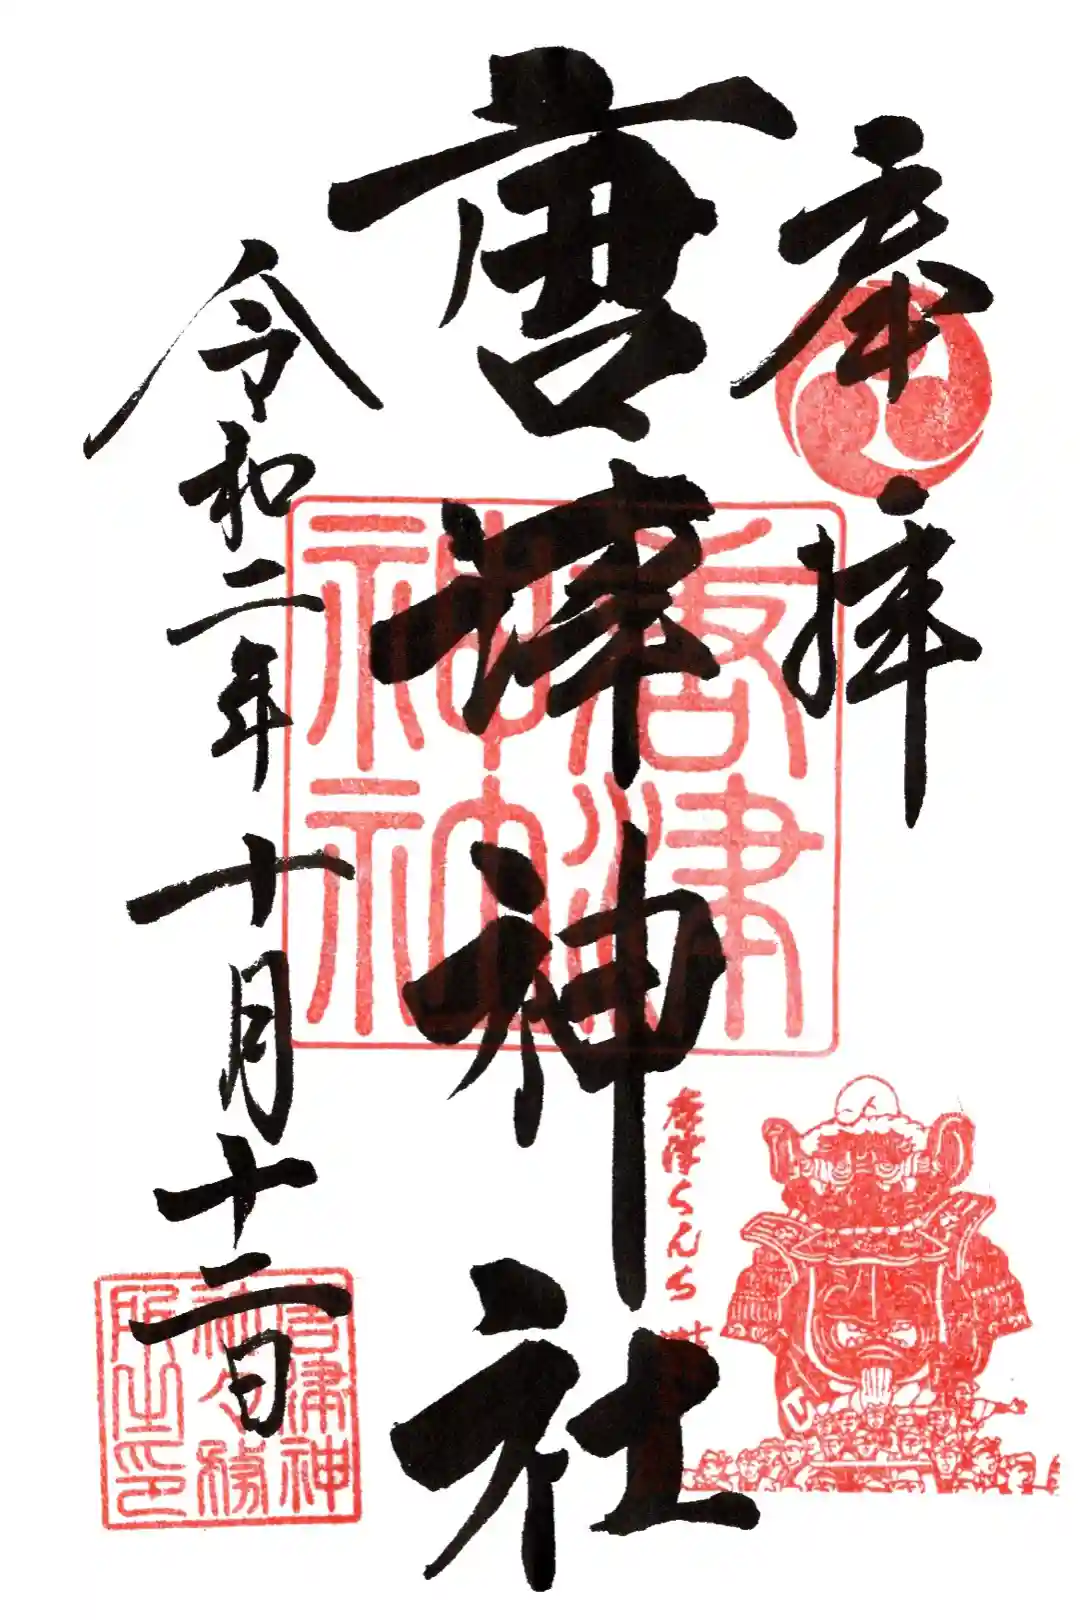 奉拝
唐津神社
令和二年十月十二日
唐津神社
唐津くんち
唐津神
社々務
所之印